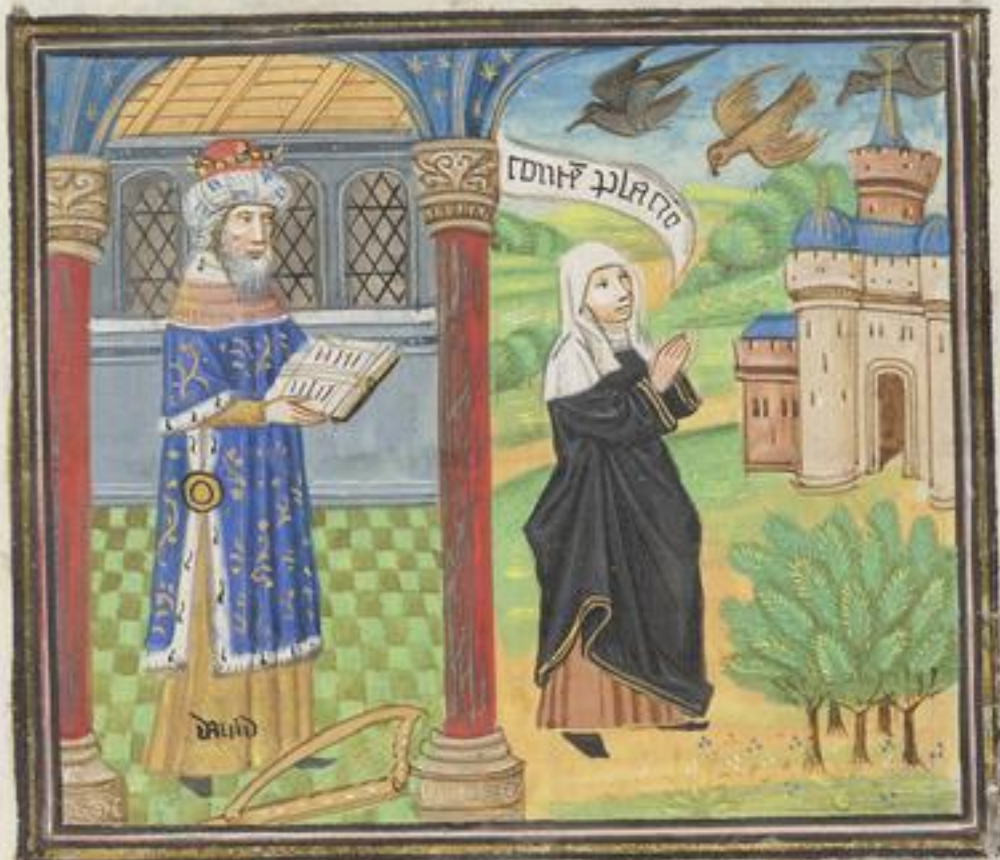 contẽplacio
dauid